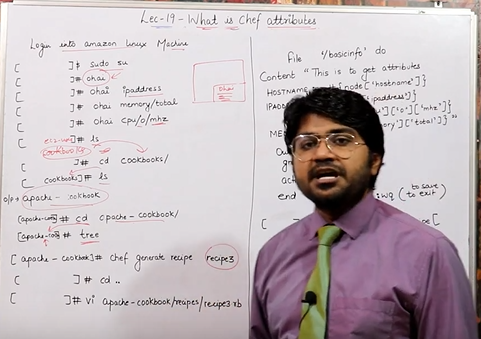 Lec-19 - What is Chef attributes
Login into amazon linux Machine
[ ]$ sudo su
[ ]# ohai
[ ]# ohai ipaddress
[ ]# ohai memory/total
[ ]# ohai cpu/0/mhz
ec2-user]# ls
cookbooks
[ ]# cd cookbooks/
[ cookbooks]# ls
O/P → apache-cookbook
[apache-cook]# cd apache-cookbook/
[apache-coo]# tree
[apache-cookbook]# chef generate recipe recipe3
[ ]# cd ..
[ ]# vi apache-cookbook/recipes/recipe3.rb
Ohai
File '/basicinfo' do
Content "This is to get attributes
HOSTNAME node['hostname']}
IPADD ['ipaddress']}
['0']['mhz']}
ME ['total']}"
end wq (to save to exit)
[